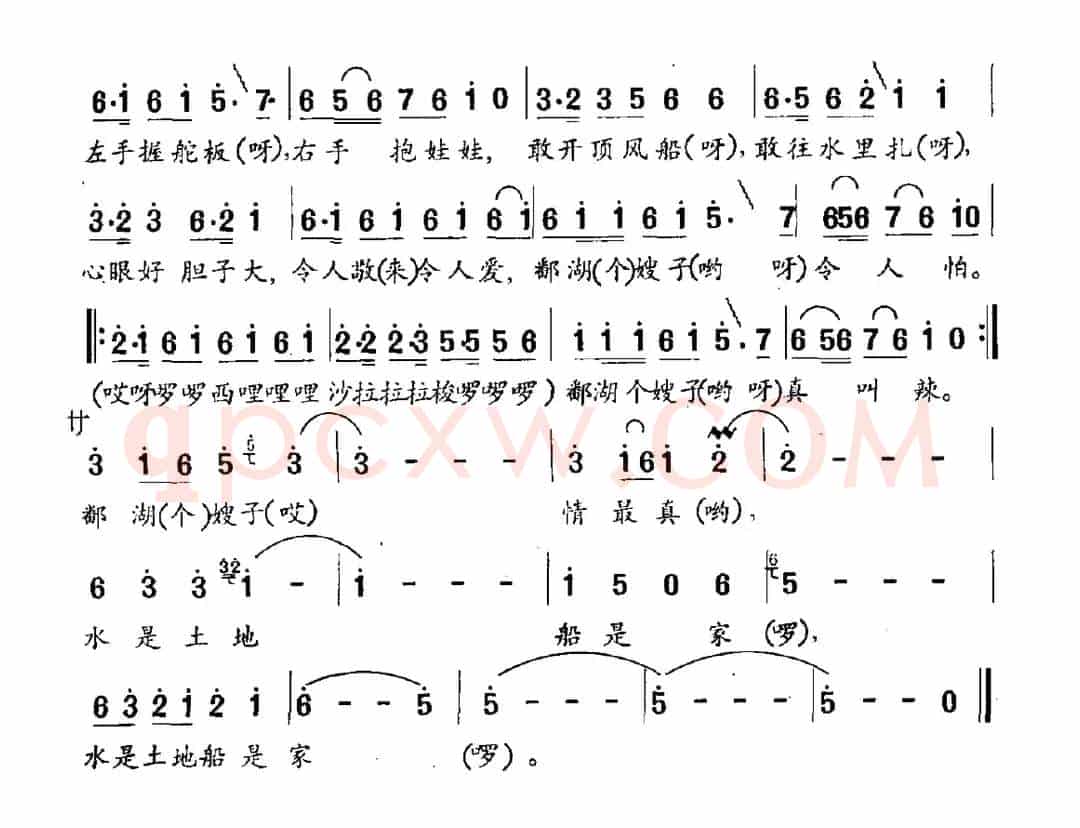 6·i 6 i 5· 7· | 6 5 6 7 6 i 0 | 3·2 3 5 6 6 | 6·5 6 2 i i |
左手握舵板(呀),右手 抱娃娃, 敢开顶风船(呀),敢往水里扎(呀),
3·2 3 6·2 i | 6·i 6 i 6 i 6 i | 6 i i 6 i 5· 7 | 656 7 6 i0 |
心眼好 胆子大,令人敬(来)令人爱,鄱湖(个)嫂子(哟 呀)令 人 怕。
‖: 2·i 6 i 6 i 6 i | 2·2 2·3 5·5 5 6 | i i i 6 i 5· 7 | 6 56 7 6 i 0 :‖
(哎呀罗罗西哩哩哩 沙拉拉拉梭啰啰啰)鄱湖个嫂子(哟 呀)真 叫 辣。
サ
qpcxw.COM
3 i 6 5 3 | 3 - - - | 3 i6i 2 | 2 - - - |
鄱 湖(个)嫂子(哎) 情 最 真(哟),
6 3 3 32 i - | i - - - | i 5 0 6 | 6 5 - - - |
水 是 土 地 船 是 家 (啰),
6 3 2 i 2 i | 6 - - 5 | 5 - - - | 5 - - - | 5 - - 0 ‖
水是土地船 是 家 (啰)。